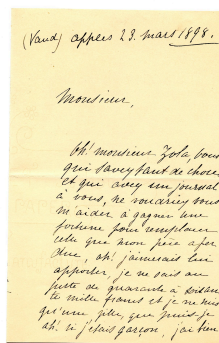 (Vaud) apples 23. mars 1898.
Monsieur,
Oh! monsieur Zola, vous
qui savez tant de choses
et qui avez un journal
à vous, ne voudriez vous
m'aider à gagner une
fortune pour remplacer
celle que mon père a per
due, ah! j'aimerais lui
apporter, je ne sais au
juste de quarante à soixan
te mille francs et je ne suis
qu'une fille, que puis-je
ah! si j'étais garçon, j'ai bien